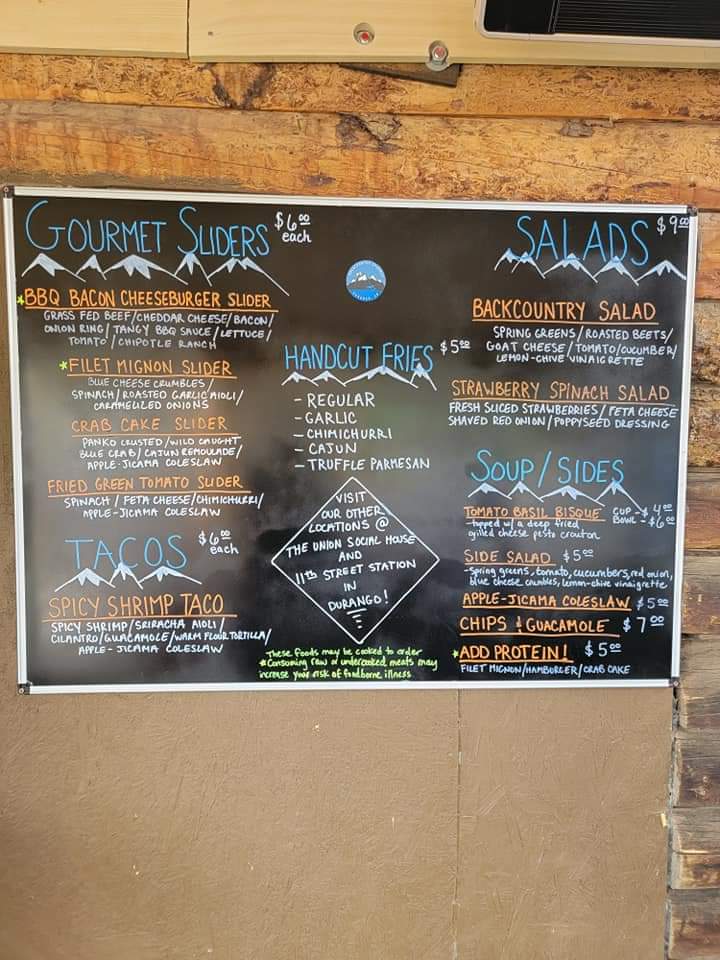 GOURMET SLIDERS $6.00 each
*BBQ BACON CHEESEBURGER SLIDER
GRASS FED BEEF/CHEDDAR CHEESE/BACON/
ONION RING/TANGY BBQ SAUCE/LETTUCE/
TOMATO/CHIPOTLE RANCH
*FILET MIGNON SLIDER
BLUE CHEESE CRUMBLES/
SPINACH/ROASTED GARLIC AIOLI/
CARAMELIZED ONIONS
CRAB CAKE SLIDER
PANKO CRUSTED/WILD CAUGHT
BLUE CRAB/CAJUN REMOULADE/
APPLE-JICAMA COLESLAW
FRIED GREEN TOMATO SLIDER
SPINACH/FETA CHEESE/CHIMICHURRI/
APPLE-JICAMA COLESLAW
TACOS $6.00 each
SPICY SHRIMP TACO
SPICY SHRIMP/SRIRACHA AIOLI/
CILANTRO/GUACAMOLE/WARM FLOUR TORTILLA/
APPLE-JICAMA COLESLAW
HANDCUT FRIES $5.00
- REGULAR
- GARLIC
- CHIMICHURRI
- CAJUN
- TRUFFLE PARMESAN
VISIT
OUR OTHER
LOCATIONS @
THE UNION SOCIAL HOUSE
AND
11th STREET STATION
IN
DURANGO!
These foods may be cooked to order
*Consuming raw or undercooked meats may
increase your risk of foodborne illness
SALADS $9.00
BACKCOUNTRY SALAD
SPRING GREENS/ROASTED BEETS/
GOAT CHEESE/TOMATO/CUCUMBER/
LEMON-CHIVE VINAIGRETTE
STRAWBERRY SPINACH SALAD
FRESH SLICED STRAWBERRIES/FETA CHEESE
SHAVED RED ONION/POPPYSEED DRESSING
SOUP/SIDES
TOMATO BASIL BISQUE CUP-$4.00
BOWL-$6.00
-topped w/ a deep fried
grilled cheese pesto crouton
SIDE SALAD $5.00
-spring greens, tomato, cucumbers, red onion,
blue cheese crumbles, lemon-chive vinaigrette
APPLE-JICAMA COLESLAW $5.00
CHIPS & GUACAMOLE $7.00
*ADD PROTEIN! $5.00
FILET MIGNON/HAMBURGER/CRAB CAKE